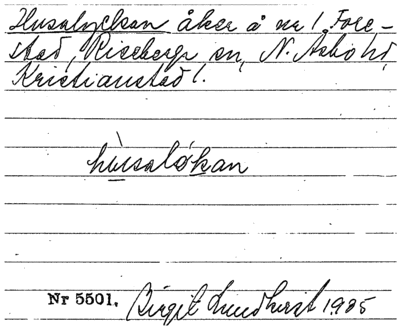 Husalyckan åker å nr 1 Fore-
stad, Riseberga sn, N. Åsbo hd,
Kristianstad l.
hùsalókan
Nr 5501. Birgit Lundkvist 1985